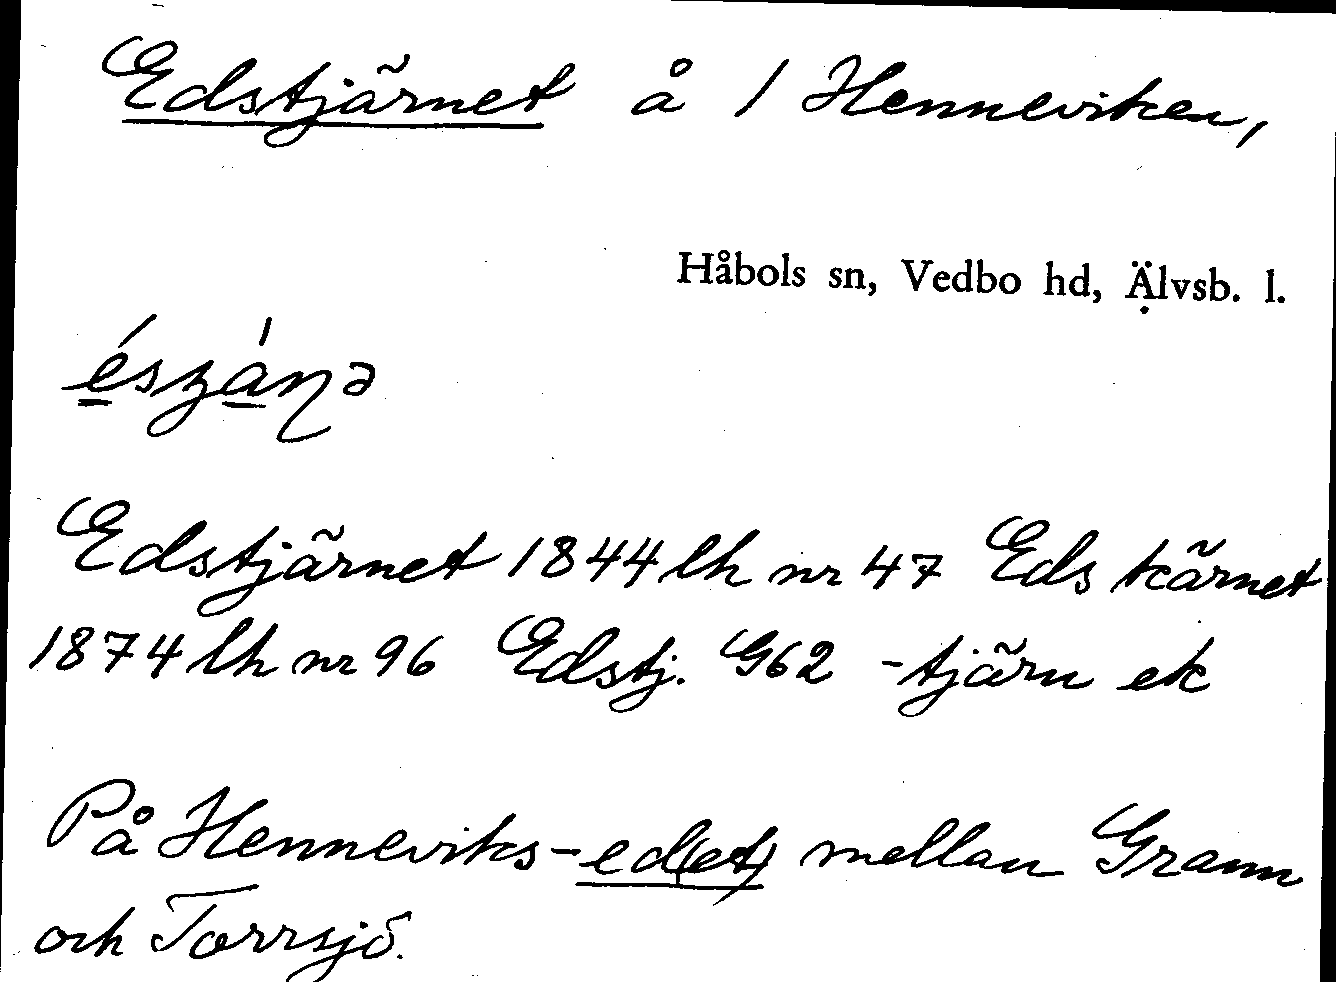 Edstjärnet å 1 Henneviken,
Håbols sn, Vedbo hd, Älvsb. l.
Edstjärnet 1844 lh nr 47 Eds kärnet
1874 lh nr 96 Edstj. G62 -tjärn ek
På Henneviks-ed(et) mellan Grann
och Torrsjö.